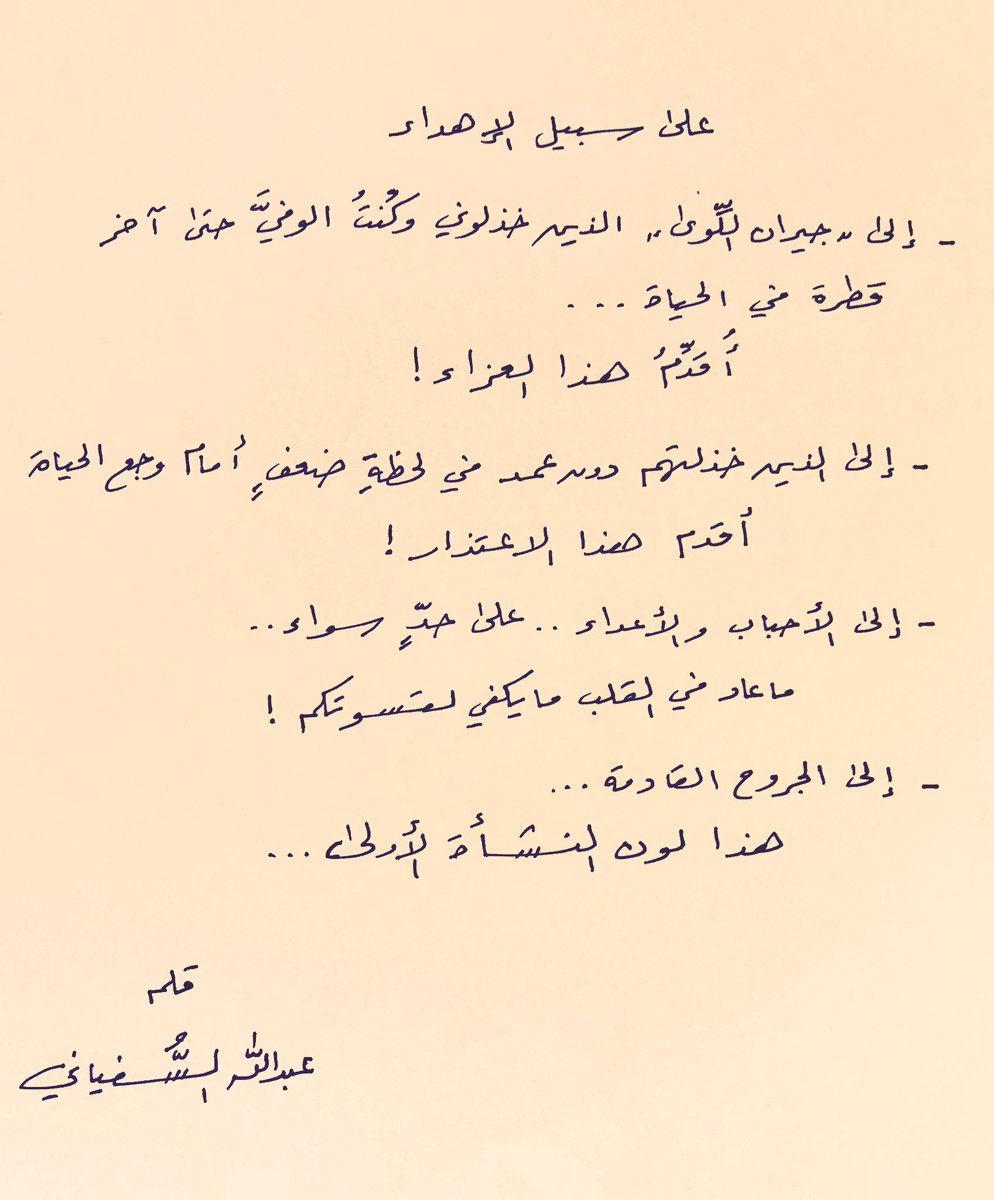 على سبيل الإهداء
- إلى "جيران اللِّوى" الذين خذلوني وكُنتُ الوفيَّ حتى آخر
قطرة في الحياة ...
أُقدِّمُ هذا العزاء !
- إلى الذين خذلتهم دون عمد في لحظةِ ضعفٍ أمام وجع الحياة
أقدم هذا الاعتذار !
- إلى الأحباب والأعداء .. على حدٍّ سواء ..
ما عاد في القلب ما يكفي لقسوتكم !
- إلى الجروح القادمة ...
هذا لون النشأة الأولى ...
قلم
عبدالله السُّفياني